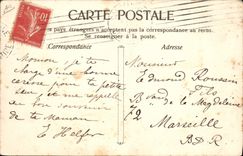 CARTE POSTALE
pays étrangers n'acceptent pas la correspondance au recto.
Se renseigner à la poste.
Correspondance
Adresse
je te
charge d'une bonne
caresse pour ta petite
de ta Maman
Monsieur
Edmond Roussin
Fils
Bd de la Magdeleine
72
Marseille
B D R